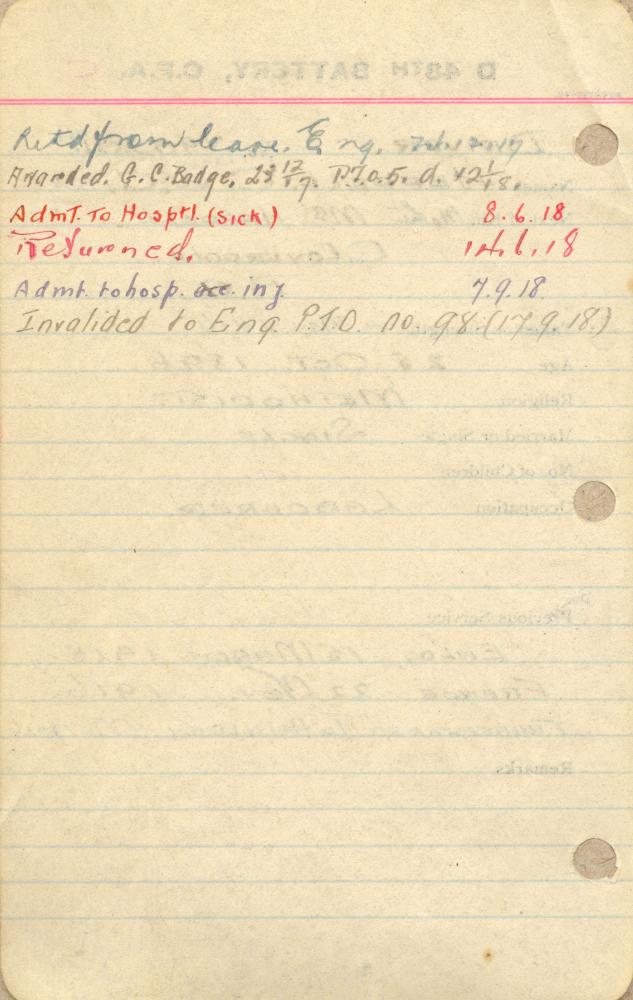 Retd from leave. Eng.
Awarded. G.C. Badge, 28 12/17. P.T.O. 5. d. 42 1/18.
Admt. To Hosptl. (Sick) 8.6.18
Returned. 14.6.18
Admt. to hosp. acc. inj. 7.9.18
Invalided to Eng. P.T.O. no. 98 (17.9.18.)